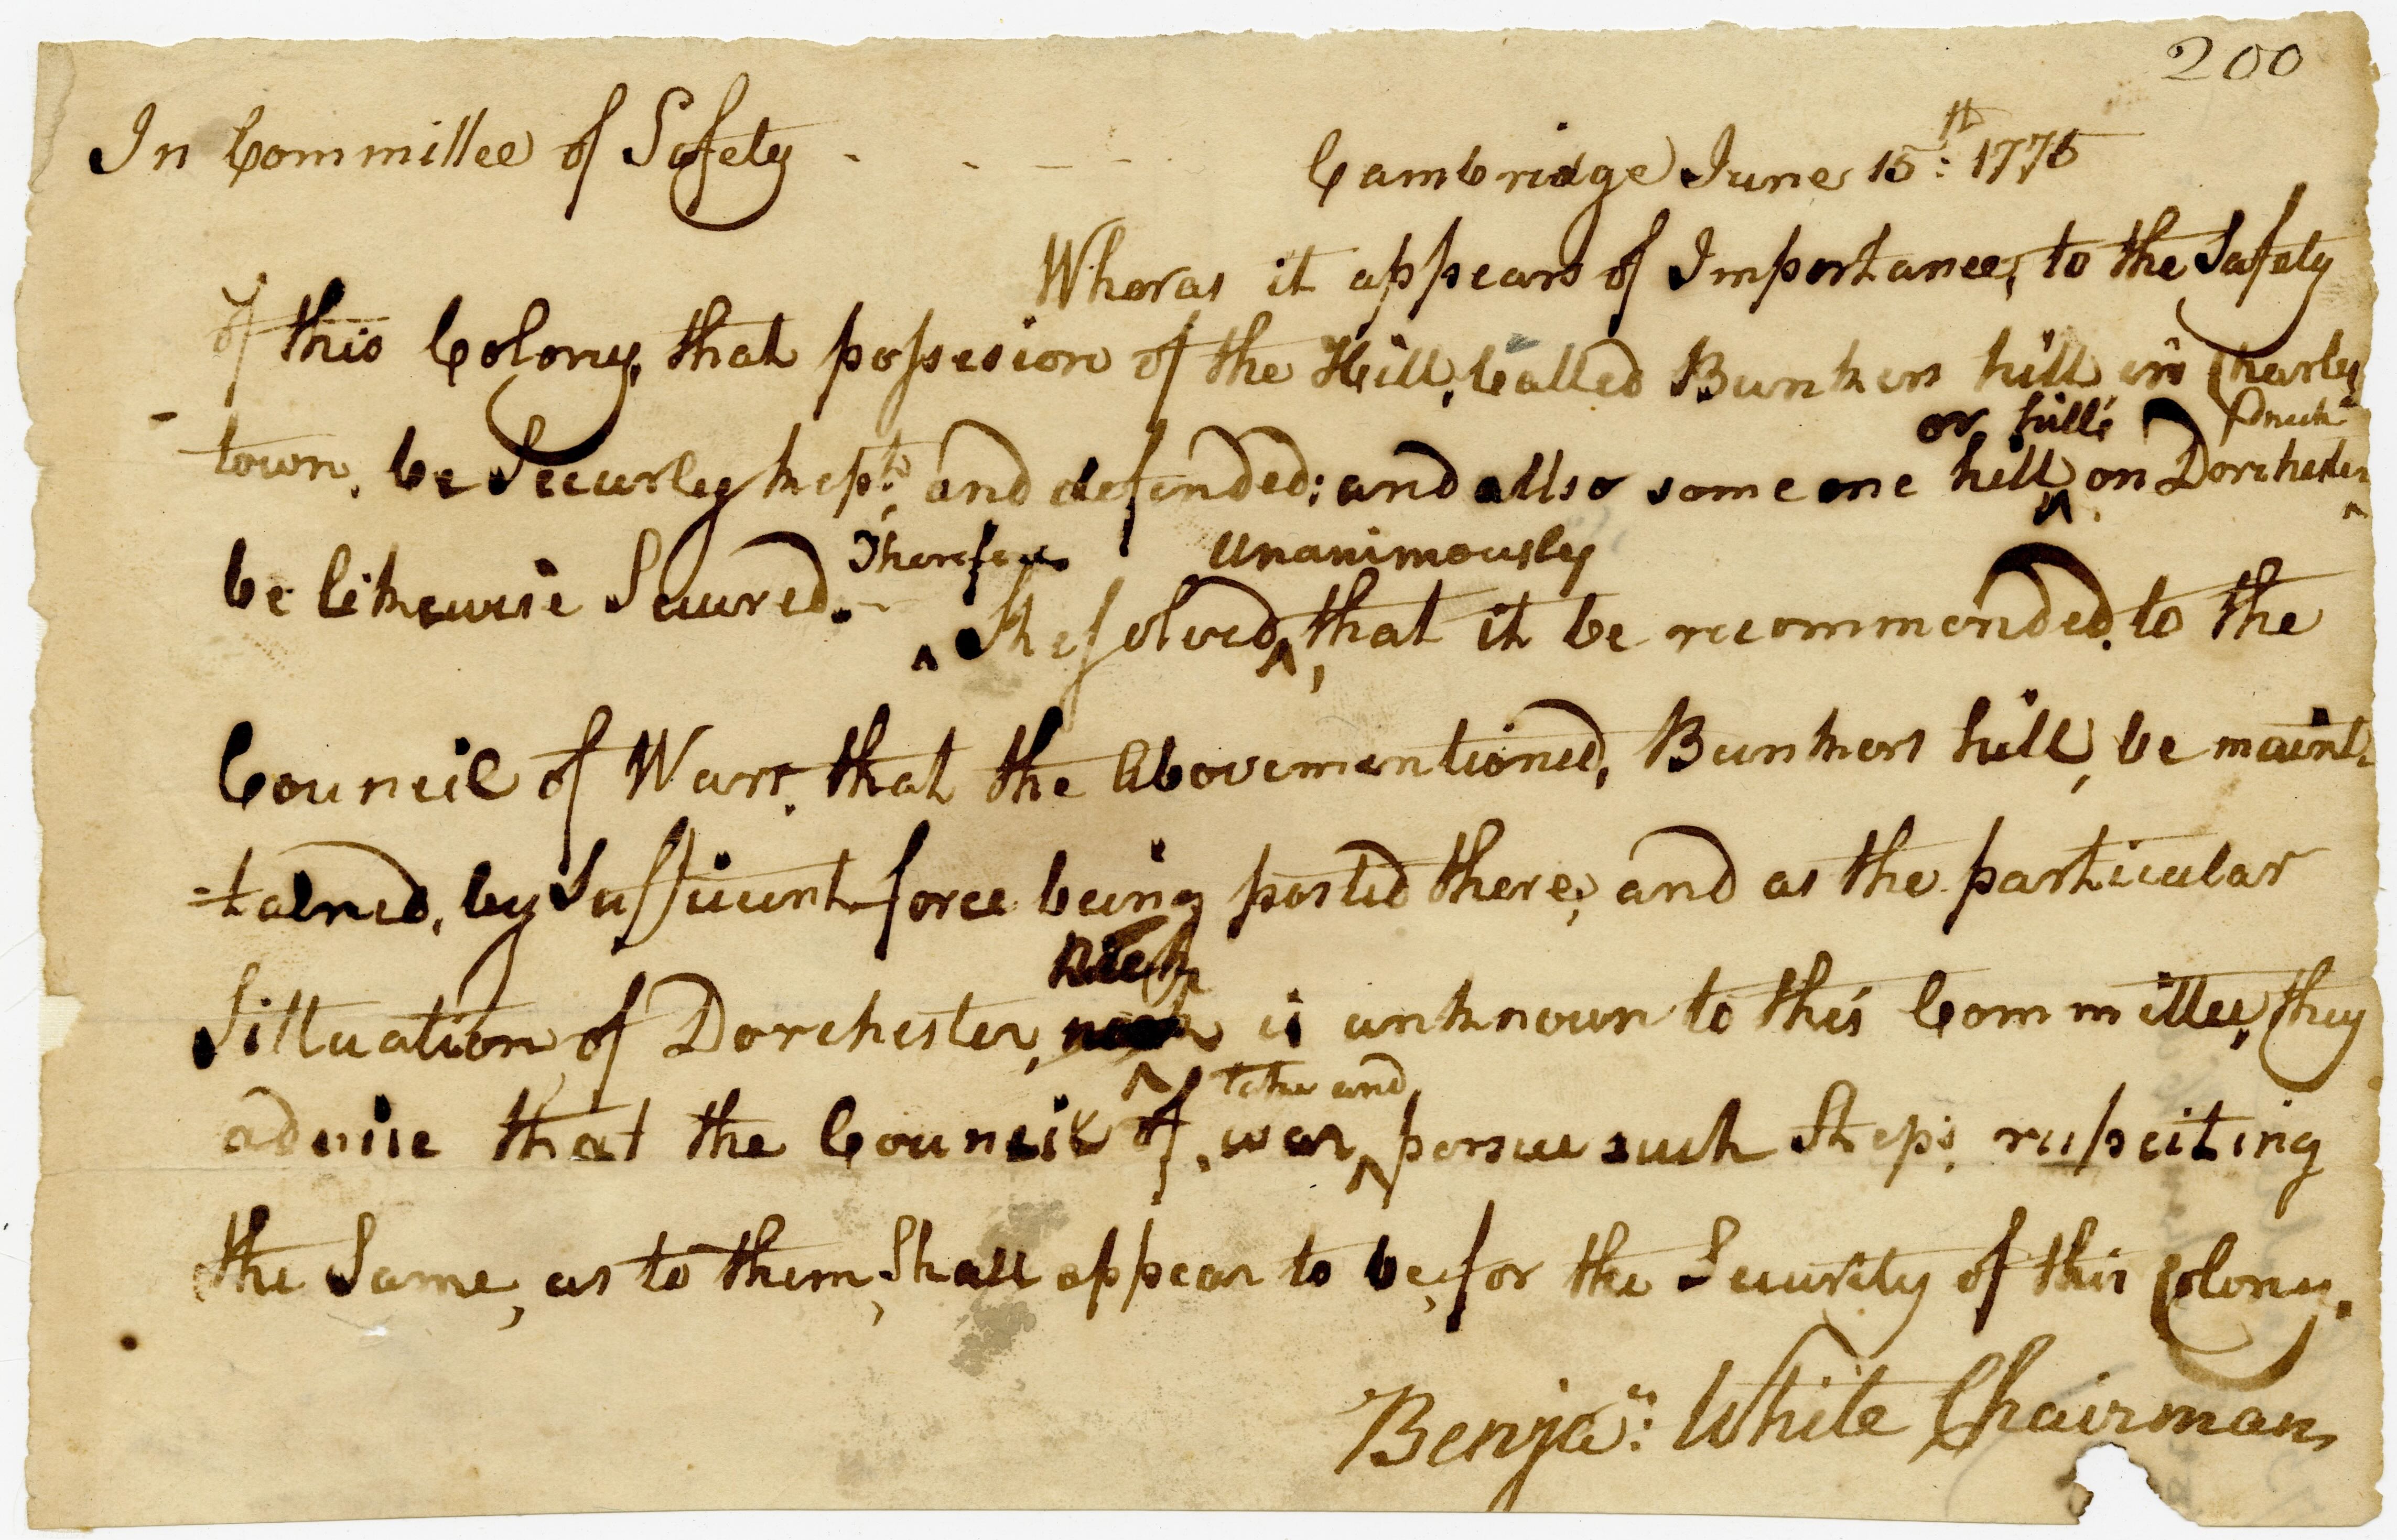 200
In Committee of Safety - - - - Cambridge June 15th: 1775
Wheras it appears of Importance, to the Safety
of this Colony, that possesion of the Hill, Called Bunkers hill in Charles
or hills neck
- town, be Securley kept, and defended; and allso some one hill ^ on Dorchester ^
Therefore Unanimously
be likewise Secured. - ^ Resolved ^, that it be recommended, to the
Council of Warr, that the Abovementioned, Bunkers hill, be maint-
=tained, by Sufficient force being posted there; and as the particular
Neck
Sittuation of Dorchester, neck is unknown to this Committee, they
^ take and
advise that the Council of, war ^ persue such Steps, respecting
the Same, as to them, Shall appear to be, for the Security of this Colony.
Benja:n: White Chairman